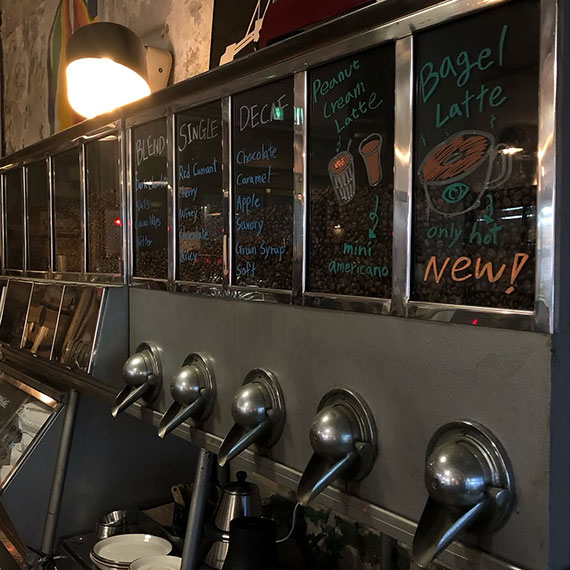 BLEND
Nuts
Bitter
SINGLE
Red Currant
Berry
Winey
Chocolate
Juicy
DECAF
Chocolate
Caramel
Apple
Savory
Grain Syrup
Soft
Peanut
Cream
Latte
mini
americano
Bagel
Latte
only hot
New!